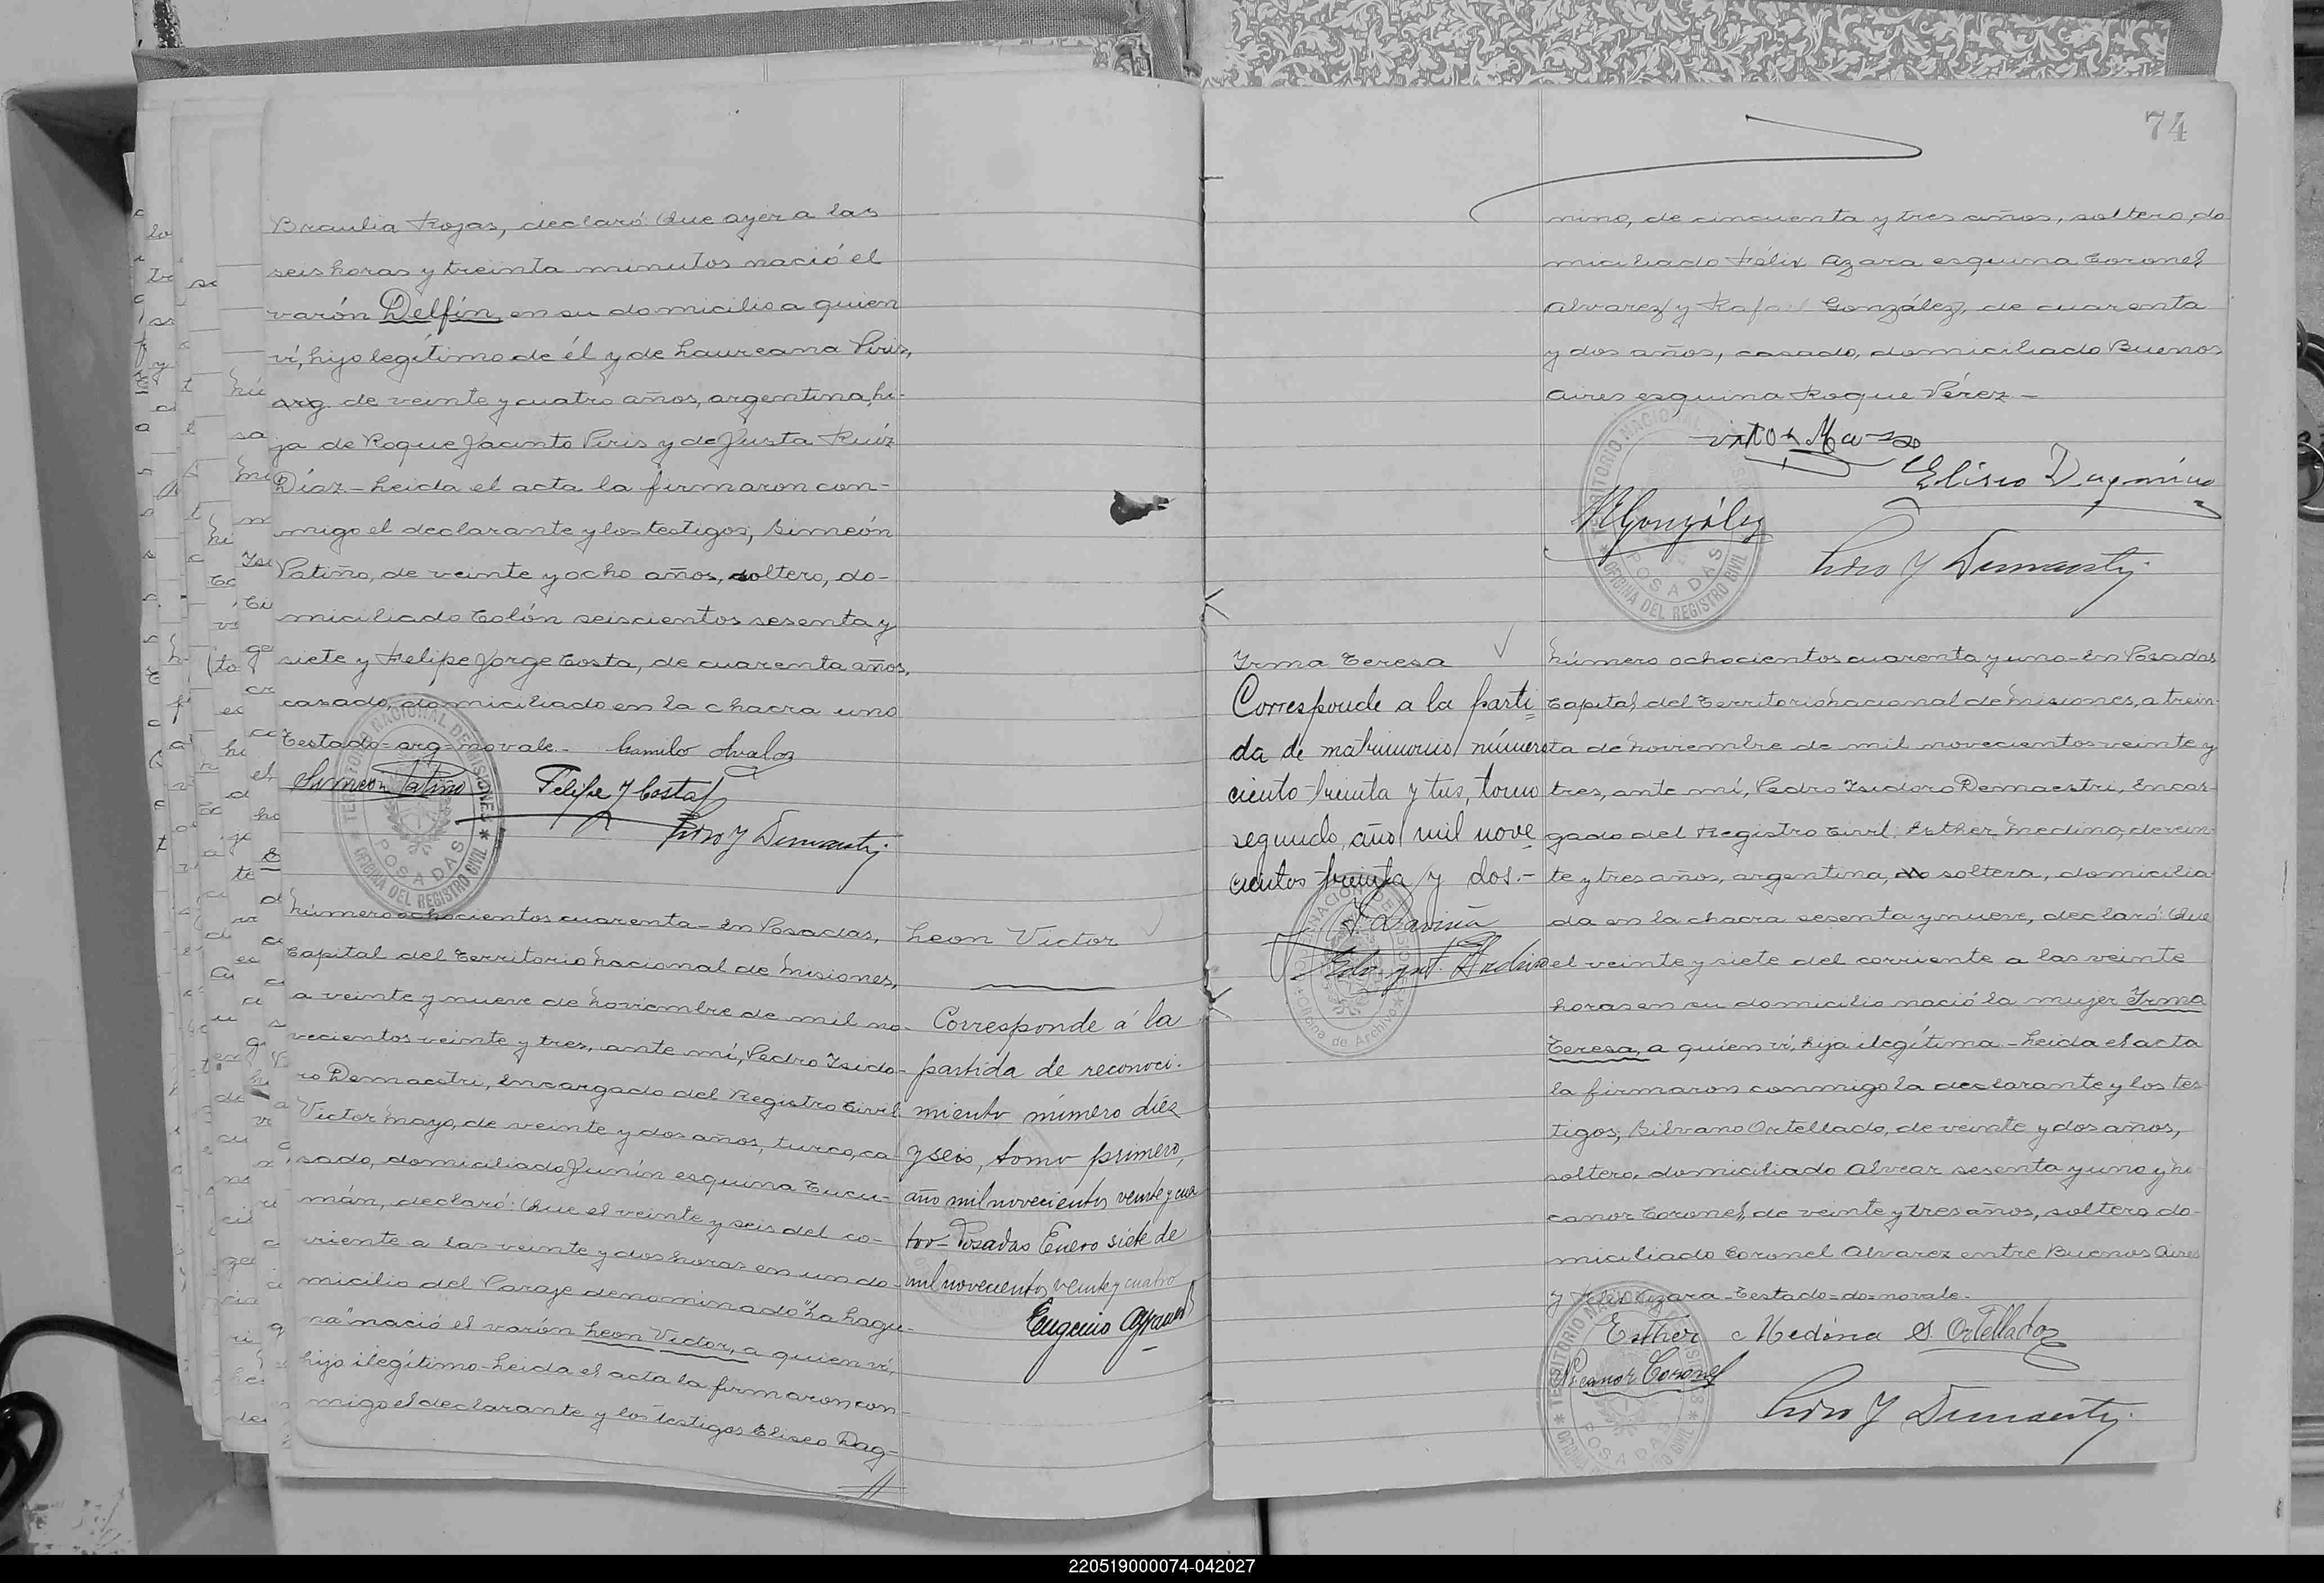 Braulia Rojas, declaró: Que ayer a las
seis horas y treinta minutos nació el
varón Delfín, en su domicilio a quien
ví, hijo legítimo de él y de Laureana Piris,
arg de veinte y cuatro años, argentina, hi-
ja de Roque Jacinto Piris y de Justa Ruíz
Díaz.- Leida el acta la firmaron con-
migo el declarante y los testigos, Simeón
Patiño, de veinte y ocho años, soltero, do-
miciliado Colón seiscientos sesenta y
siete y Felipe Jorge Costa, de cuarenta años,
casado, domiciliado en la chacra uno
Testado=arg=no vale.- Camilo Avalos
Simeon Patiño Felipe J Costa
Pedro Y Demaestri
TERRITORIO NACIONAL DE MISIONES
POSADAS
OFICINA DEL REGISTRO CIVIL
Número ochocientos cuarenta- En Posadas,
Capital del Territorio Nacional de Misiones,
a veinte y nueve de Noviembre de mil no-
vecientos veinte y tres, ante mí, Pedro Isido-
ro Demaestri, Encargado del Registro Civil
Victor Mayo, de veinte y dos años, turco, ca-
sado, domiciliado Junín esquina Tucu-
mán, declaró: Que el veinte y seis del co-
rriente a las veinte y dos horas en un do-
micilio del Paraje denominado "La Lagu-
na" nació el varón Leon Victor, a quien ví,
hijo ilegítimo- Leida el acta la firmaron con-
migo el declarante y los testigos Eliseo Dag-
Leon Victor
Corresponde á la
partida de reconoci-
miento número diéz
y seis, tomo primero,
año mil novecientos veinte y cua
tro- Posadas Enero siete de
mil novecientos veinte y cuatro
Eugenio
74
nino, de cincuenta y tres años, soltero, do
miciliado Félix Azara esquina Coronel
Alvarez y Rafael González, de cuarenta
y dos años, casado, domiciliado Buenos
Aires esquina Roque Pérez-
Eliseo Dagnino
RGonzález
Pedro Y Demaestri
TERRITORIO NACIONAL
POSADAS
OFICINA DEL REGISTRO CIVIL
Irma Teresa
Corresponde a la parti
da de matrimonio número
ciento treinta y tres, tomo
segundo, año mil nove
cientos treinta y dos.-
Oficina de Archivo
Número ochocientos cuarenta y uno- En Posadas
Capital del Territorio Nacional de Misiones, a trein-
ta de Noviembre de mil novecientos veinte y
tres, ante mí, Pedro Isidoro Demaestri, Encar-
gado del Registro Civil Esther Medina, de vein-
te y tres años, argentina, do soltera, domicilia
da en la chacra sesenta y nueve, declaró: Que
el veinte y siete del corriente a las veinte
horas en su domicilio nació la mujer Irma
Teresa, a quien ví, hija ilegítima- Leida el acta
la firmaron conmigo la declarante y los tes
tigos, Silvano Ortellado, de veinte y dos años,
soltero, domiciliado Alvear sesenta y uno y Ni-
canor Coronel, de veinte y tres años, soltero do-
miciliado Coronel Alvarez entre Buenos Aires
y Félix Azara- Testado=do=no vale.-
Esther Medina S. Ortellado
Nicanor Coronel
Pedro Y Demaestri
TERRITORIO NACIONAL DE MISIONES
POSADAS
220519000074-042027